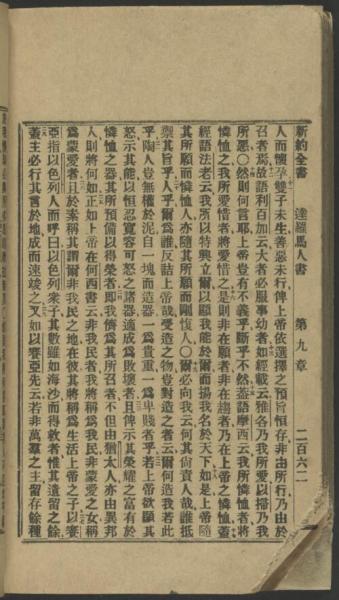 新約全書 達羅馬人書 第九章 二百六二
人而懷孕雙子未生善惡未行俾上帝依選擇之預旨恒存非由所行乃由於
召者焉故語利百加云大者必服事幼者如經載云雅各乃我所愛以掃乃我
所惡○然則何言耶上帝豈有不義乎斷乎不然蓋語摩西云我所憐恤者將
憐恤之我所愛惜者將愛惜之是則非在願者非在趨者乃在上帝之憐恤蓋
經語法老云我所以特興立爾以顯我能於爾而揚我名於天下如是上帝隨
其所願而憐恤人亦隨其所願而剛愎人○爾必向我云何其尙責人哉誰抵
禦其旨乎人乎爾爲誰反詰上帝哉受造之物豈對造之者云爾何造我若此
乎陶人豈無權於泥自一塊而造器一爲貴重一爲卑賤者乎若上帝欲顯其
怒示其能以恒忍寬容可怒之諸器適成爲敗壞者且俾示其榮耀之富有於
憐恤之器其所預備以得榮者即我儕爲其所召者不但由猶太人亦由異邦
人則將何如正如上帝在何西書云非我民者我將稱爲我民非蒙愛之女稱
爲蒙愛者且於素稱其謂爾非我民之地在彼其將稱爲生活上帝之子以賽
亞指以色列人而呼曰以色列衆子其數雖如海沙而得救者惟其遺留之餘
蓋主必行其言於地成而速竣之又如以賽亞先云若非萬軍之主留存餘種